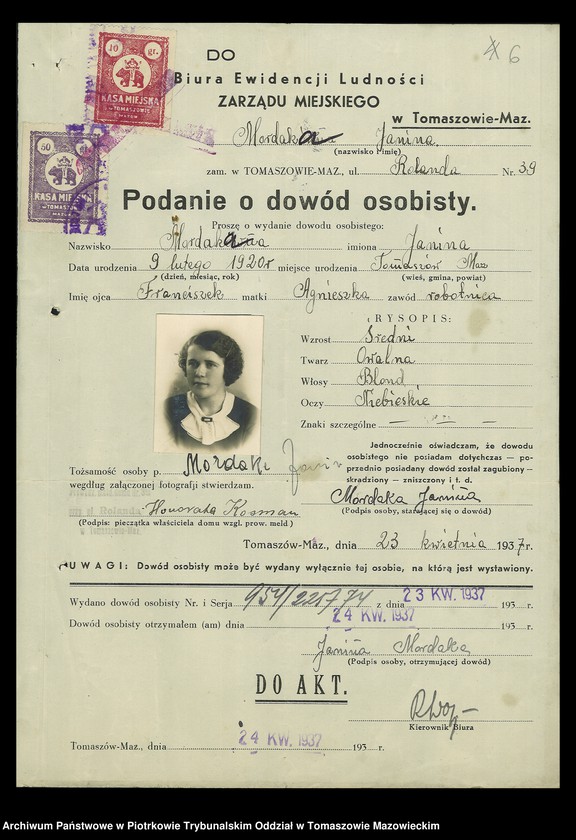 6
DO
Biura Ewidencji Ludności
ZARZĄDU MIEJSKIEGO
w Tomaszowie-Maz.
10 gr.
KASA MIEJSKA
W TOMASZOWIE
MAZOW.
50
KASA MIEJSKA
W TOMASZOWIE
MAZOW.
Mordaka Janina.
(nazwisko i imię)
zam. w TOMASZOWIE-MAZ., ul. Rolanda Nr. 39
Podanie o dowód osobisty.
Proszę o wydanie dowodu osobistego:
Nazwisko Mordaka imiona Janina
Data urodzenia 9 lutego 1920 r miejsce urodzenia Tomaszów Maz
(dzień, miesiąc, rok) (wieś, gmina, powiat)
Imię ojca Franciszek matki Agnieszka zawód robotnica
RYSOPIS:
Wzrost Średni
Twarz Owalna
Włosy Blond
Oczy Niebieskie
Znaki szczególne
Jednocześnie oświadczam, że dowodu
osobistego nie posiadam dotychczas — po-
przednio posiadany dowód został zagubiony —
skradziony — zniszczony i t. d.
Tożsamość osoby p. Mordaka Janin
według załączonej fotografji stwierdzam.
Mordaka Janina
(Podpis osoby, starającej się o dowód)
Honorata Kosman
(Podpis: pieczątka właściciela domu wzgl. prow. meld )
Tomaszów-Maz., dnia 23 kwietnia 1937 r.
UWAGI: Dowód osobisty może być wydany wyłącznie tej osobie, na którą jest wystawiony.
Wydano dowód osobisty Nr. i Serja 954/225774 z dnia 23 KW. 1937 193 r.
Dowód osobisty otrzymałem (am) dnia 24 KW. 1937 193 r.
Janina Mordaka
(Podpis osoby, otrzymującej dowód)
DO AKT.
Kierownik Biura
Tomaszów-Maz., dnia 24 KW. 1937 193 r.
Archiwum Państwowe w Piotrkowie Trybunalskim Oddział w Tomaszowie Mazowieckim